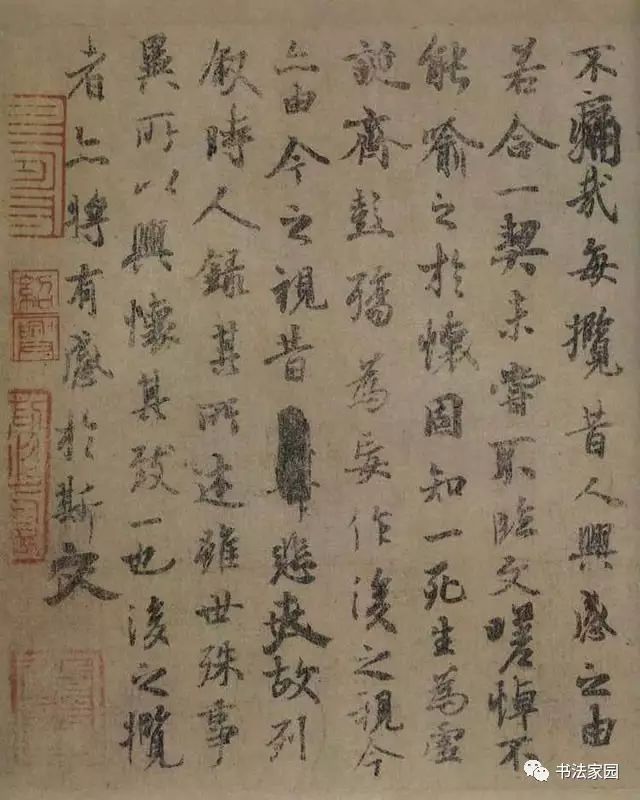 不痛哉每攬昔人興感之由
若合一契未嘗不臨文嗟悼不
能喻之於懷固知一死生為虛
誕齊彭殤為妄作後之視今
亦由今之視昔悲夫故列
敘時人錄其所述雖世殊事
異所以興懷其致一也後之攬
者亦將有感於斯文
紹興
书法家园